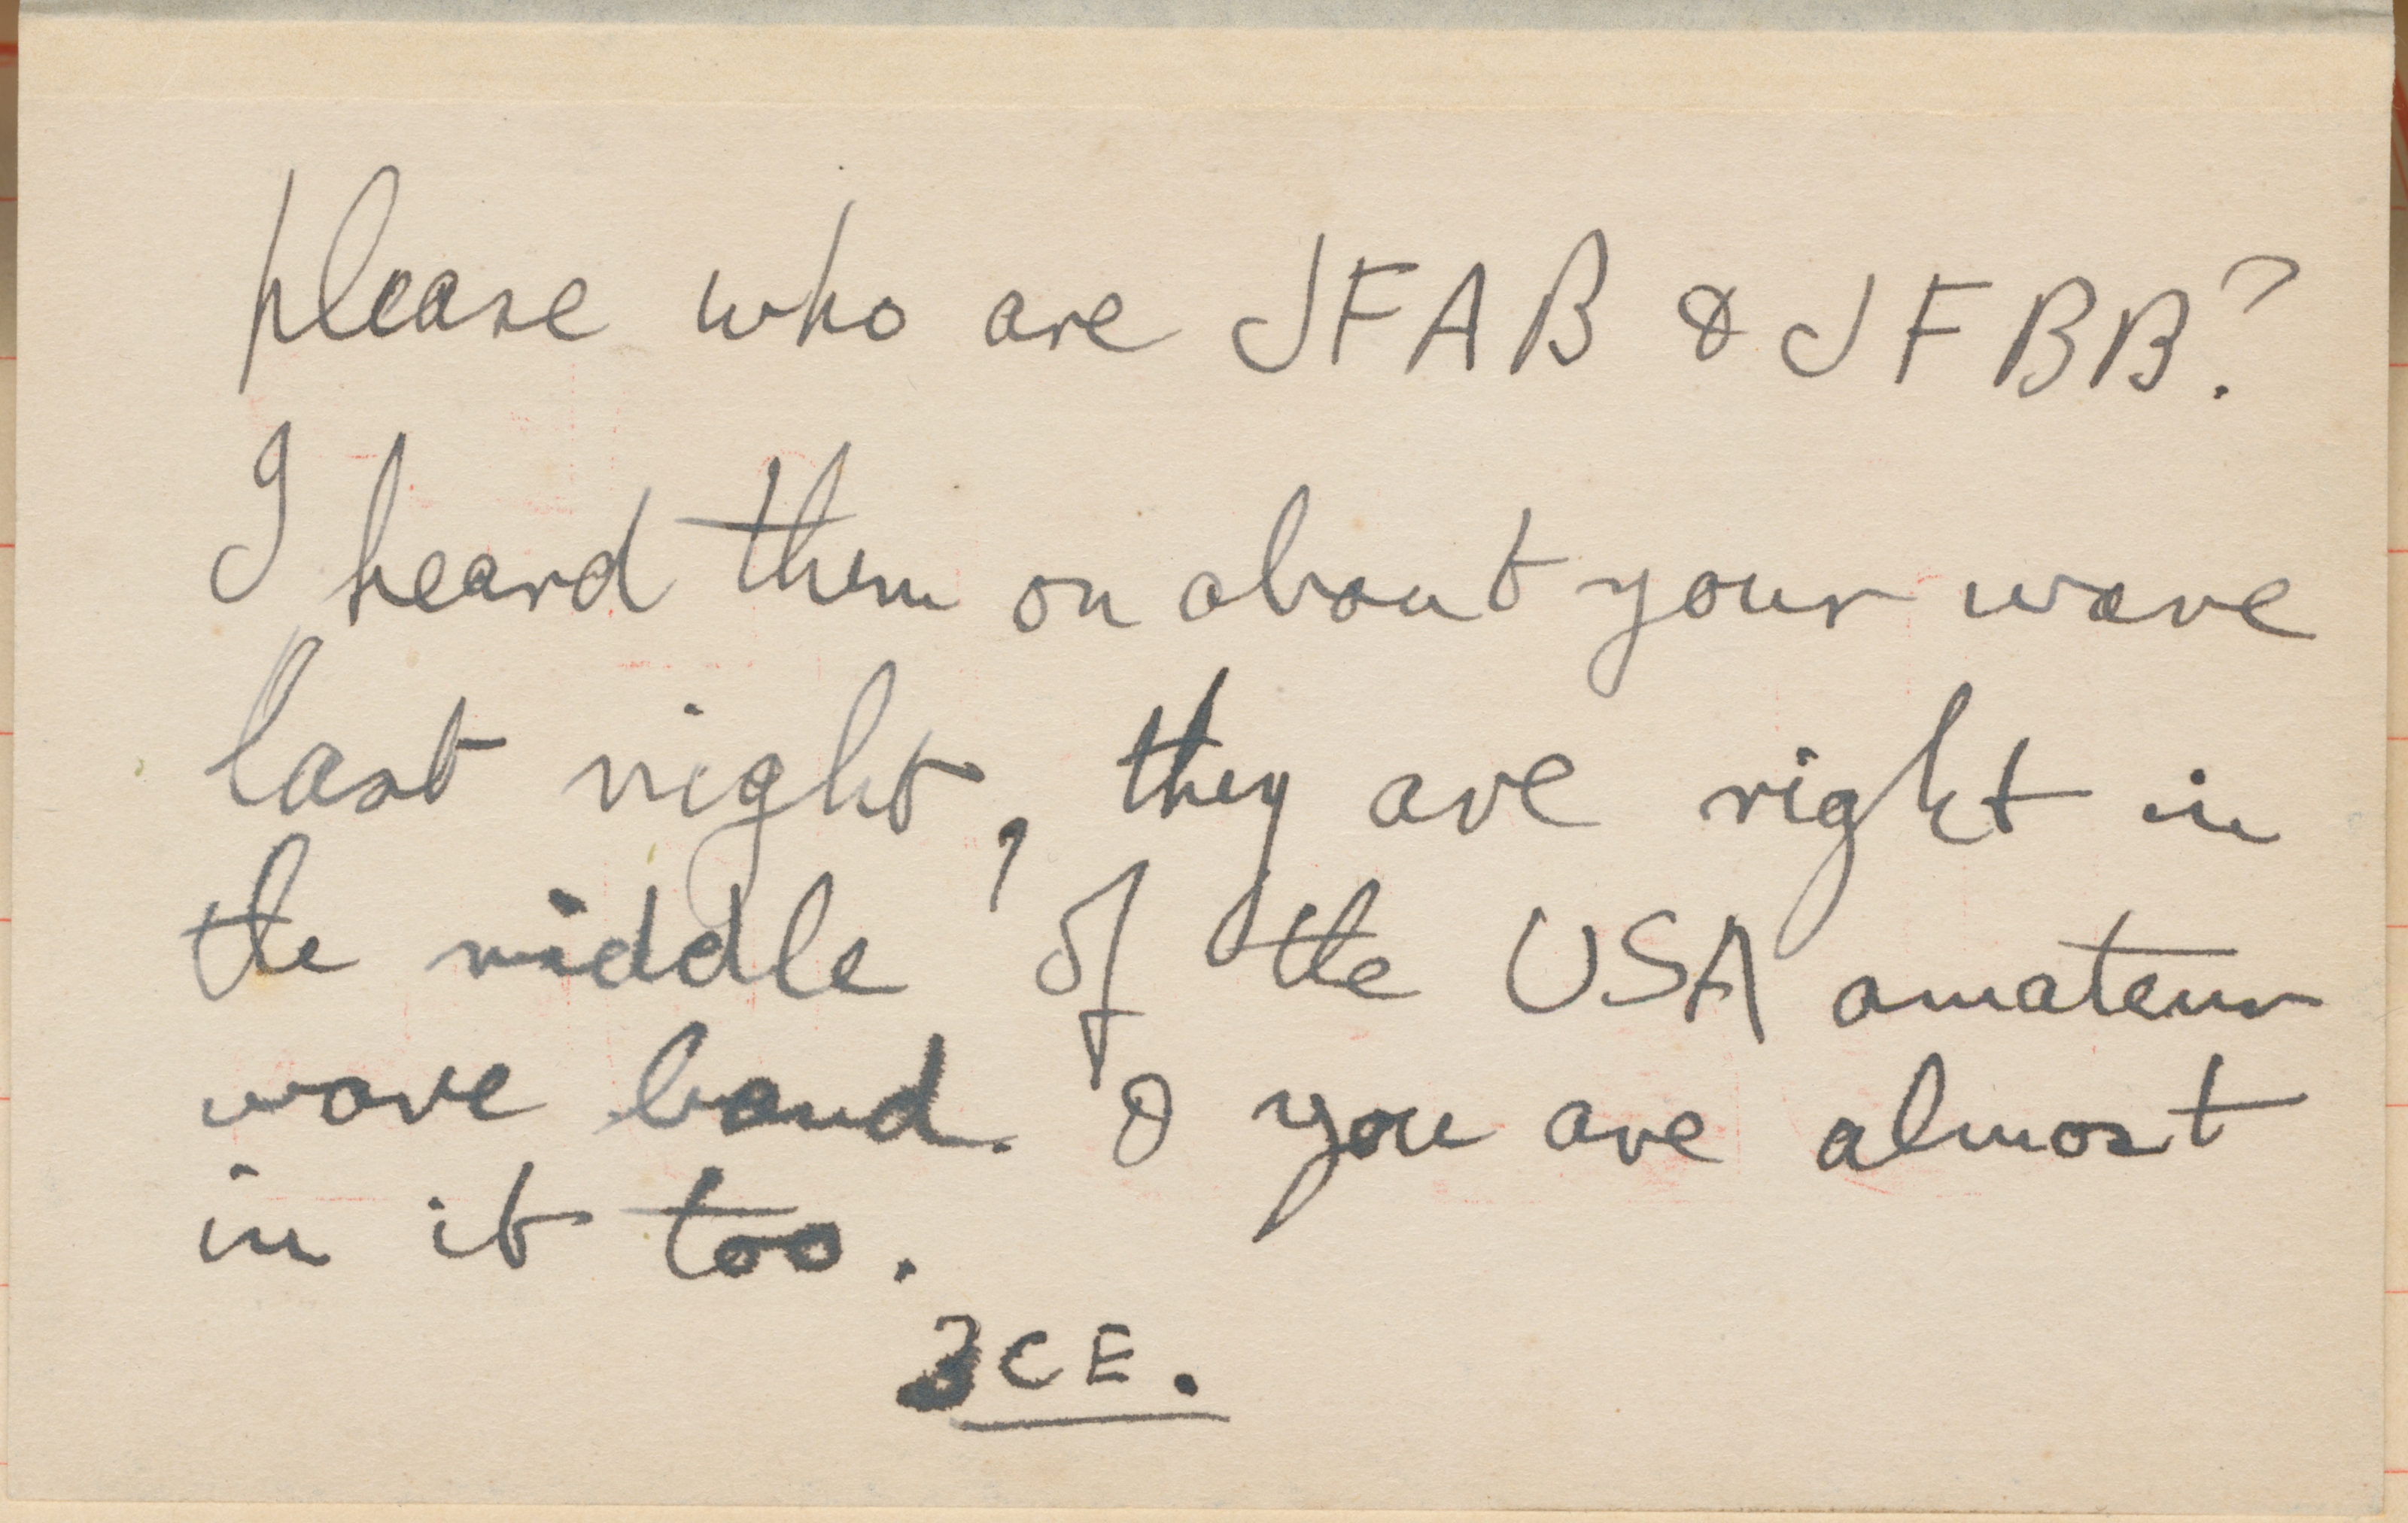 please who are JFAB & JFBB?
I heard them on about your wave
last night, they are right in
the middle of the USA amateur
wave band. & you are almost
in it too.
3CE.